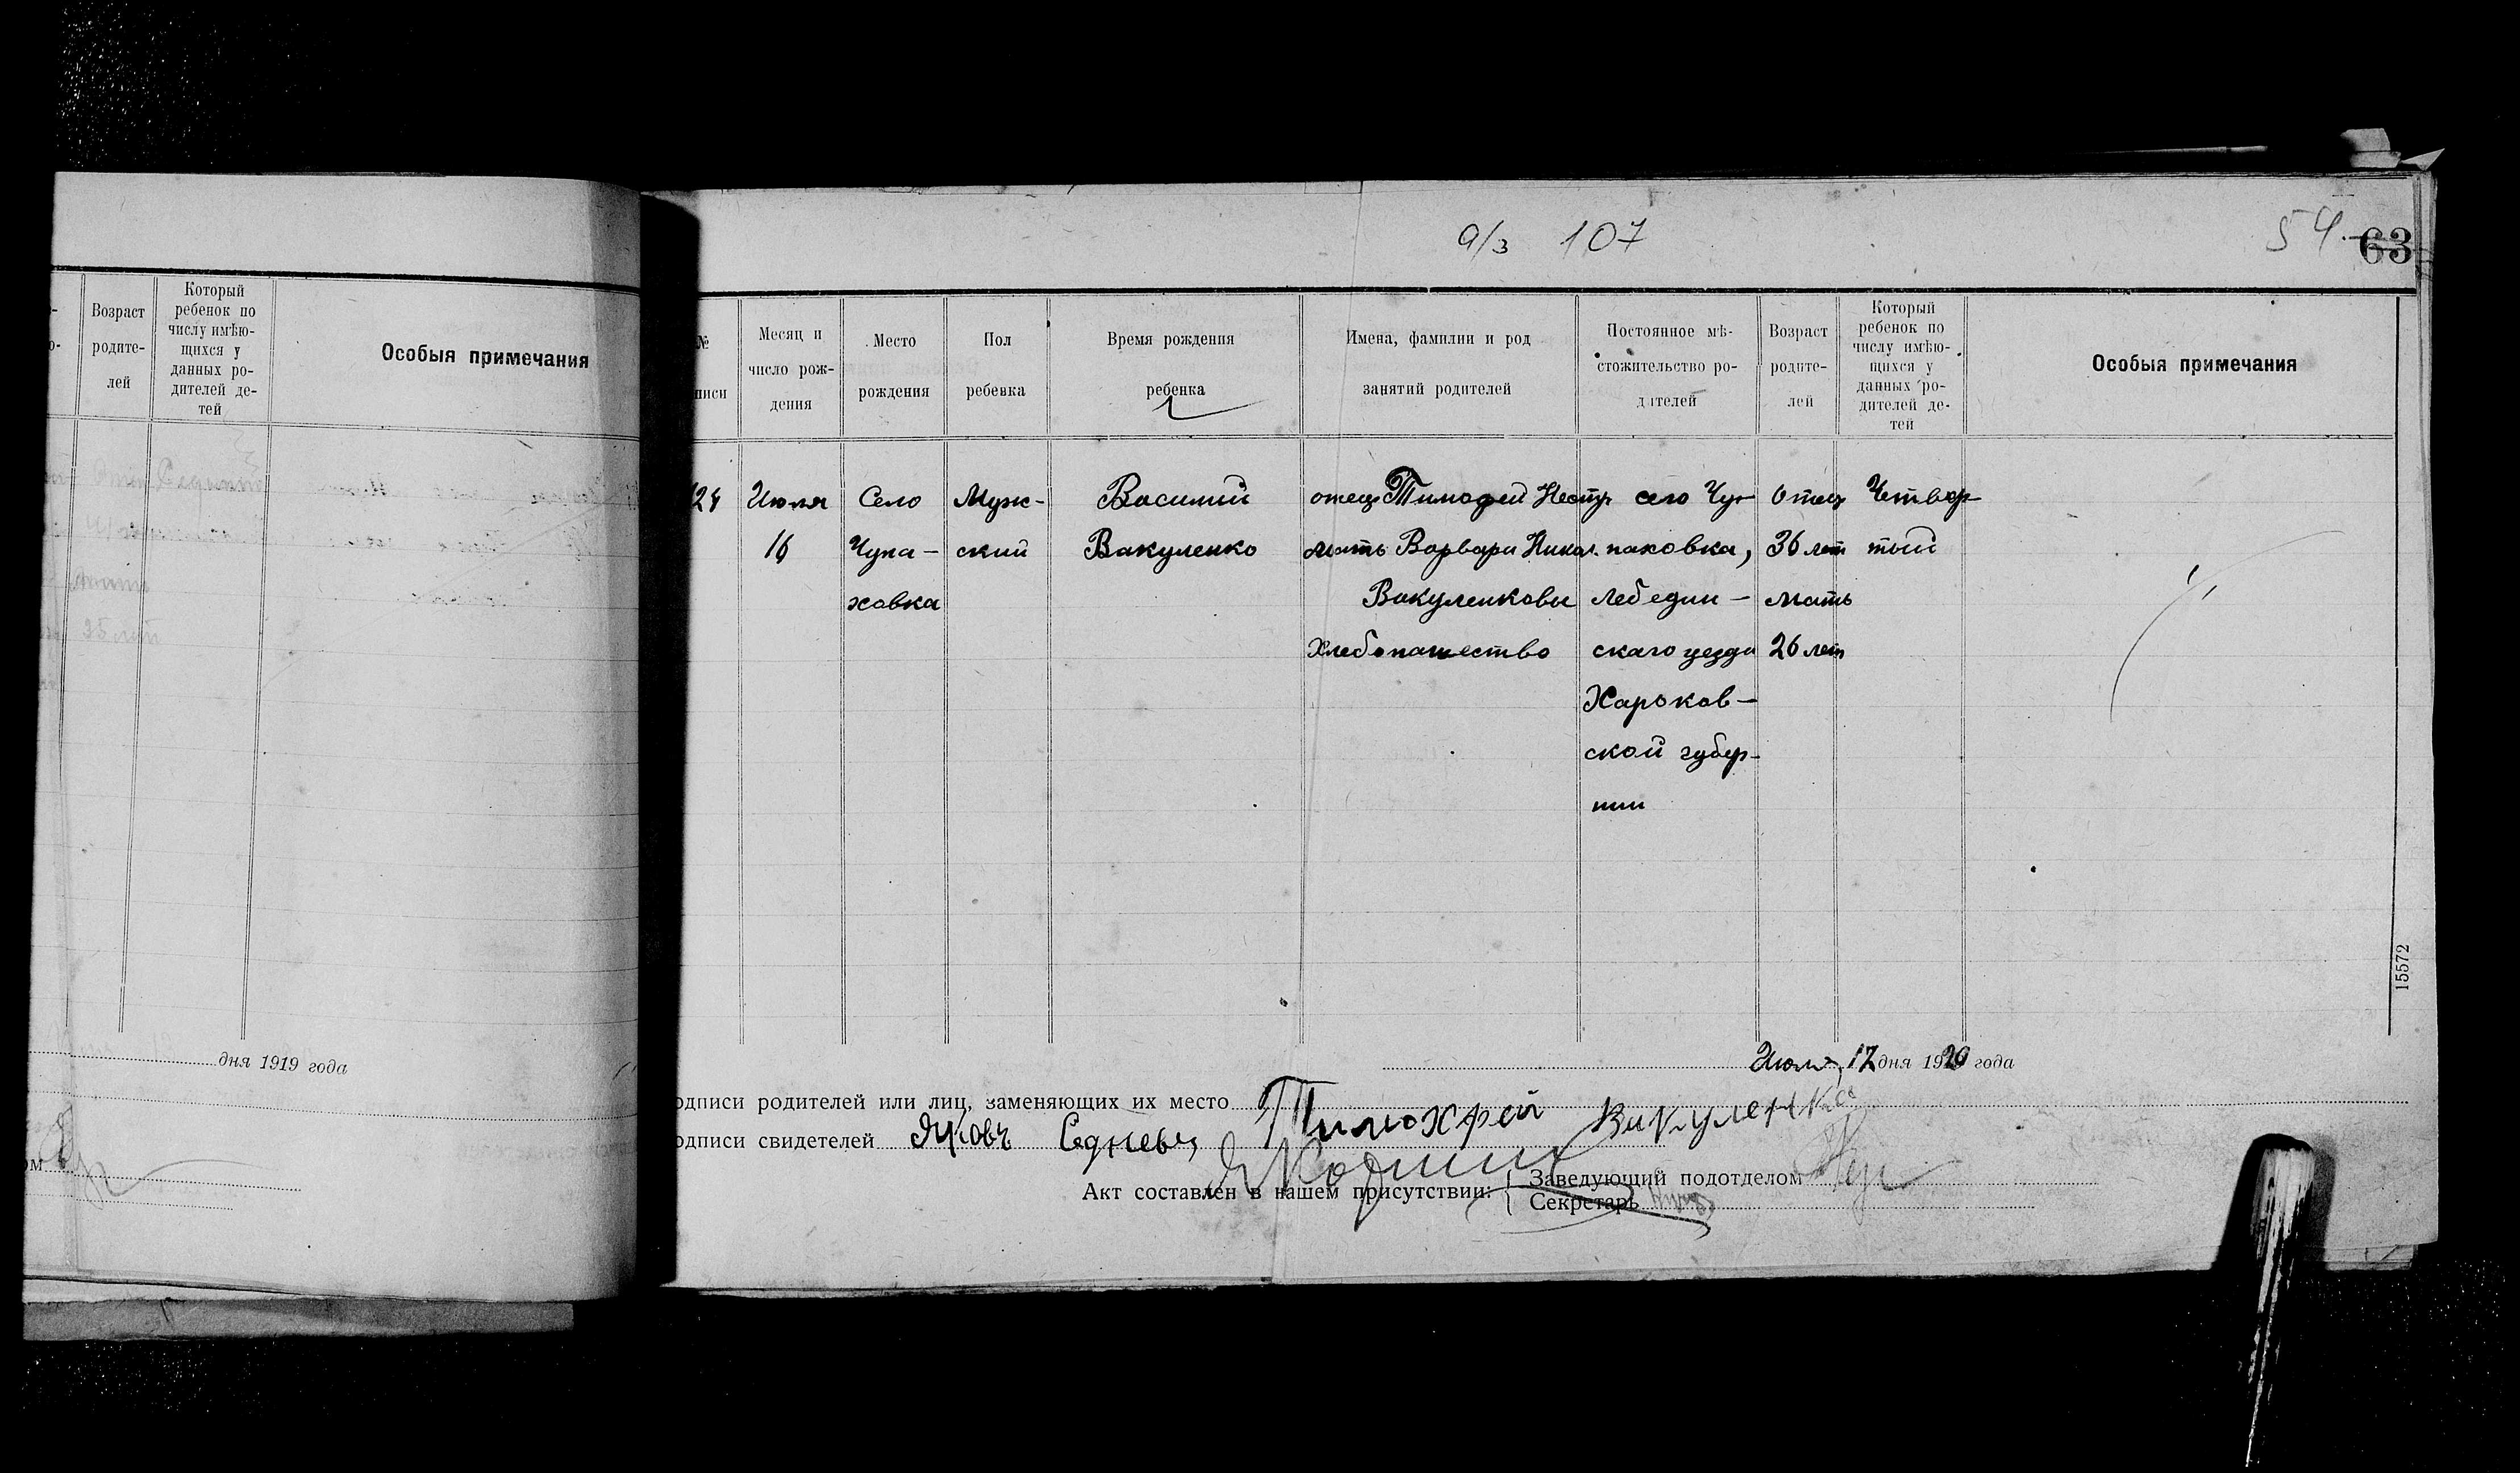 а/з 107
54. 63
Возраст родителей
Который ребенок по числу имѣющихся у данных родителей детей
Особыя примечания
дня 1919 года
№
писи
Месяц и
число рож-
дения
Место
рождения
Пол
ребенка
Время рождения
ребенка
Имена, фамилии и род
занятий родителей
Постоянное мѣ-
стожительство ро-
дителей
Возраст
родите-
лей
Который
ребенок по
числу имѣю-
щихся у
данных ро-
дителей де-
тей
Особыя примечания
Июля
16
Село
Чупа-
ховка
Муж-
ский
Василий
Вакуленко
отец Тимофей Нестр
мать Варвара Никол.
Вакуленковы
Хлебопашество
село Чу-
паховка,
Лебедин-
скаго уезда
Харьков-
ской губер-
нии
Отец
36 лет
мать
26 лет
Четвер-
тый
15572
Июля, 17 дня 1920 года
одписи родителей или лиц, заменяющих их место Тимохфей Вакуленко
одписи свидетелей Яковъ
Акт составлен в нашем присутствии:
Заведующий подотделом
Секретарь